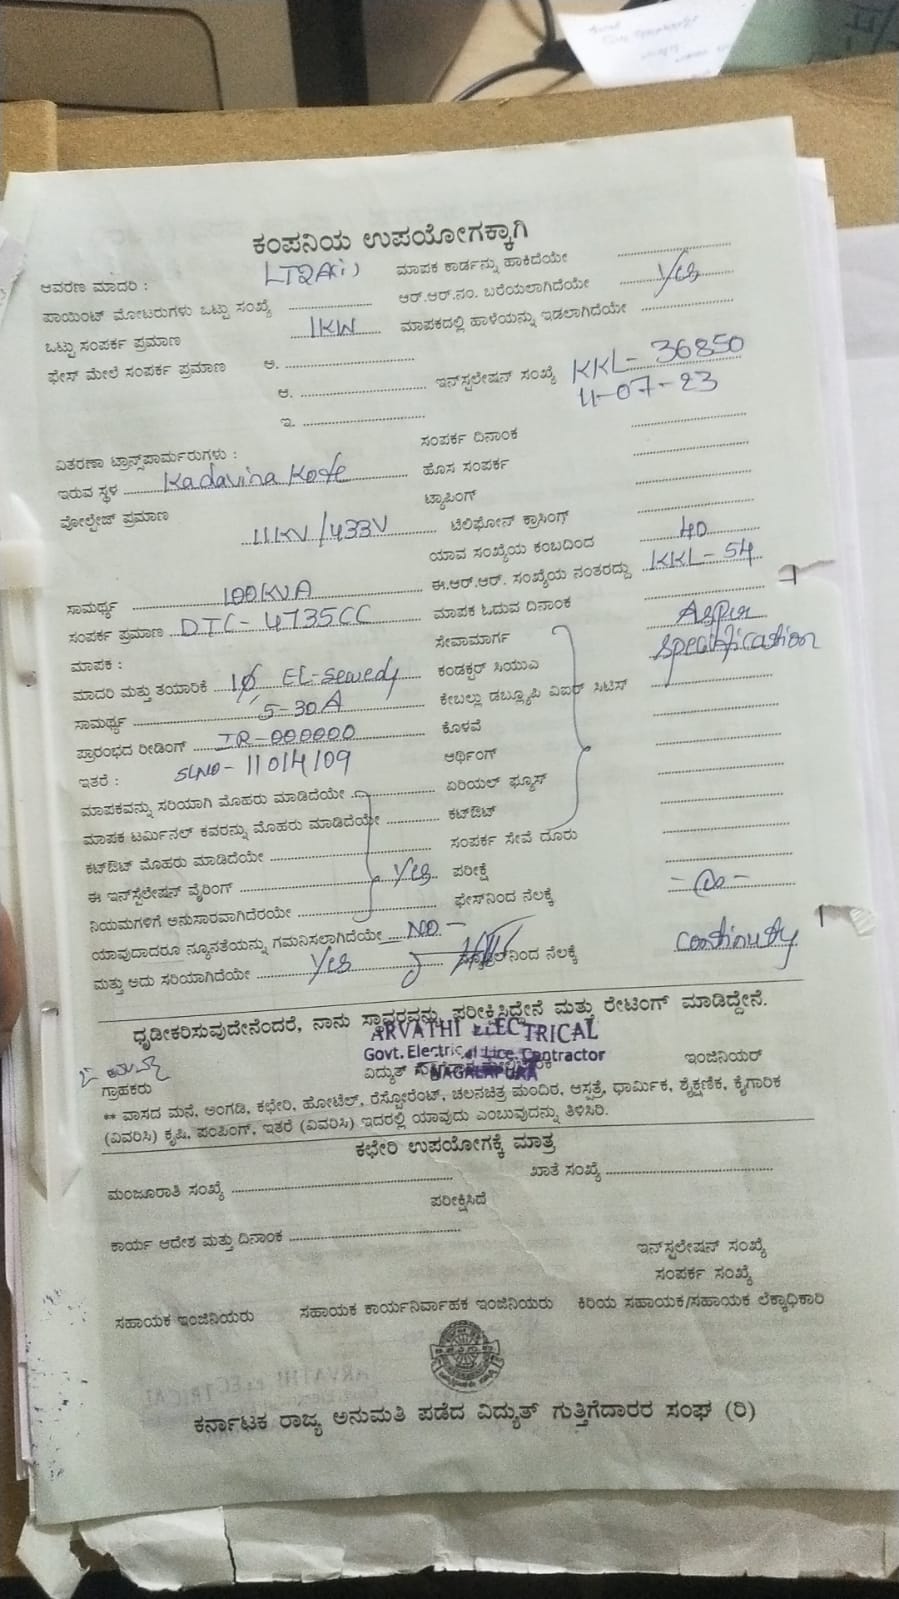 ಕಂಪನಿಯ ಉಪಯೋಗಕ್ಕಾಗಿ
ಆವರಣ ಮಾದರಿ : LT2A(i) ಮಾಪಕ ಕಾರ್ಡನ್ನು ಹಾಕಿದೆಯೇ
ಪಾಯಿಂಟ್ ಮೋಟರುಗಳು ಒಟ್ಟು ಸಂಖ್ಯೆ ಆರ್.ಆರ್.ನಂ. ಬರೆಯಲಾಗಿದೆಯೇ Yes
ಒಟ್ಟು ಸಂಪರ್ಕ ಪ್ರಮಾಣ 1KW ಮಾಪಕದಲ್ಲಿ ಹಾಳೆಯನ್ನು ಇಡಲಾಗಿದೆಯೇ
ಫೇಸ್ ಮೇಲೆ ಸಂಪರ್ಕ ಪ್ರಮಾಣ ಅ.
ಆ. ಇನ್‌ಸ್ಟಲೇಷನ್ ಸಂಖ್ಯೆ KKL- 36850
11-07-23
ಇ.
ಸಂಪರ್ಕ ದಿನಾಂಕ
ವಿತರಣಾ ಟ್ರಾನ್ಸ್‌ಪಾರ್ಮರುಗಳು :
ಇರುವ ಸ್ಥಳ Kadavina Kote ಹೊಸ ಸಂಪರ್ಕ
ವೋಲ್ಟೇಜ್ ಪ್ರಮಾಣ 11KV/433V ಟ್ಯಾಪಿಂಗ್
ಟೆಲಿಫೋನ್ ಕ್ರಾಸಿಂಗ್
ಯಾವ ಸಂಖ್ಯೆಯ ಕಂಬದಿಂದ 40
ಸಾಮರ್ಥ್ಯ 100KVA ಈ.ಆರ್.ಆರ್. ಸಂಖ್ಯೆಯ ನಂತರದ್ದು KKL- 54
ಸಂಪರ್ಕ ಪ್ರಮಾಣ DTC- 4735CC ಮಾಪಕ ಓದುವ ದಿನಾಂಕ
ಮಾಪಕ : ಸೇವಾಮಾರ್ಗ As per
ಮಾದರಿ ಮತ್ತು ತಯಾರಿಕೆ 1ϕ EL-sewedy ಕಂಡಕ್ಟರ್ ಸಿಯುಎ specification
ಸಾಮರ್ಥ್ಯ 5-30A ಕೇಬಲ್ಲು ಡಬ್ಲ್ಯೂಪಿ ವಿಐಆರ್ ಸಿಟಿಎಸ್
ಪ್ರಾರಂಭದ ರೀಡಿಂಗ್ IR-000000 ಕೊಳವೆ
ಇತರೆ : SLNO- 11014109 ಅರ್ಥಿಂಗ್
ಮಾಪಕವನ್ನು ಸರಿಯಾಗಿ ಮೊಹರು ಮಾಡಿದೆಯೇ ಏರಿಯಲ್ ಫ್ಯೂಸ್
ಮಾಪಕ ಟರ್ಮಿನಲ್ ಕವರನ್ನು ಮೊಹರು ಮಾಡಿದೆಯೇ ಕಟ್‌ಔಟ್
ಕಟ್‌ಔಟ್ ಮೊಹರು ಮಾಡಿದೆಯೇ ಸಂಪರ್ಕ ಸೇವೆ ದೂರು
ಈ ಇನ್‌ಸ್ಟೆಲೇಷನ್ ವೈರಿಂಗ್ Yes ಪರೀಕ್ಷೆ
ನಿಯಮಗಳಿಗೆ ಅನುಸಾರವಾಗಿದೆರಯೇ ಫೇಸ್‌ನಿಂದ ನೆಲಕ್ಕೆ
ಯಾವುದಾದರೂ ನ್ಯೂನತೆಯನ್ನು ಗಮನಿಸಲಾಗಿದೆಯೇ NO -
ಮತ್ತು ಅದು ಸರಿಯಾಗಿದೆಯೇ Yes ನಿಂದ ನೆಲಕ್ಕೆ continuty
ಧೃಡೀಕರಿಸುವುದೇನೆಂದರೆ, ನಾನು ಸ್ಥಾವರವನ್ನು ಪರೀಕ್ಷಿಸಿದ್ದೇನೆ ಮತ್ತು ರೇಟಿಂಗ್ ಮಾಡಿದ್ದೇನೆ.
ARVATHI ELECTRICAL
Govt. Electrical Lice. Contractor
NAGALAPURA
ಗ್ರಾಹಕರು ವಿದ್ಯುತ್ ಇಂಜಿನಿಯರ್
** ವಾಸದ ಮನೆ, ಅಂಗಡಿ, ಕಛೇರಿ, ಹೋಟೆಲ್, ರೆಸ್ಟೋರೆಂಟ್, ಚಲನಚಿತ್ರ ಮಂದಿರ, ಆಸ್ಪತ್ರೆ, ಧಾರ್ಮಿಕ, ಶೈಕ್ಷಣಿಕ, ಕೈಗಾರಿಕ
(ವಿವರಿಸಿ) ಕೃಷಿ, ಪಂಪಿಂಗ್, ಇತರೆ (ವಿವರಿಸಿ) ಇದರಲ್ಲಿ ಯಾವುದು ಎಂಬುವುದನ್ನು ತಿಳಿಸಿರಿ.
ಕಛೇರಿ ಉಪಯೋಗಕ್ಕೆ ಮಾತ್ರ
ಮಂಜೂರಾತಿ ಸಂಖ್ಯೆ ಖಾತೆ ಸಂಖ್ಯೆ
ಪರೀಕ್ಷಿಸಿದೆ
ಕಾರ್ಯ ಆದೇಶ ಮತ್ತು ದಿನಾಂಕ
ಇನ್‌ಸ್ಟಲೇಷನ್ ಸಂಖ್ಯೆ
ಸಂಪರ್ಕ ಸಂಖ್ಯೆ
ಸಹಾಯಕ ಇಂಜಿನಿಯರು ಸಹಾಯಕ ಕಾರ್ಯನಿರ್ವಾಹಕ ಇಂಜಿನಿಯರು ಕಿರಿಯ ಸಹಾಯಕ/ಸಹಾಯಕ ಲೆಕ್ಕಾಧಿಕಾರಿ
ಕರ್ನಾಟಕ ರಾಜ್ಯ ಅನುಮತಿ ಪಡೆದ ವಿದ್ಯುತ್ ಗುತ್ತಿಗೆದಾರರ ಸಂಘ (ರಿ)